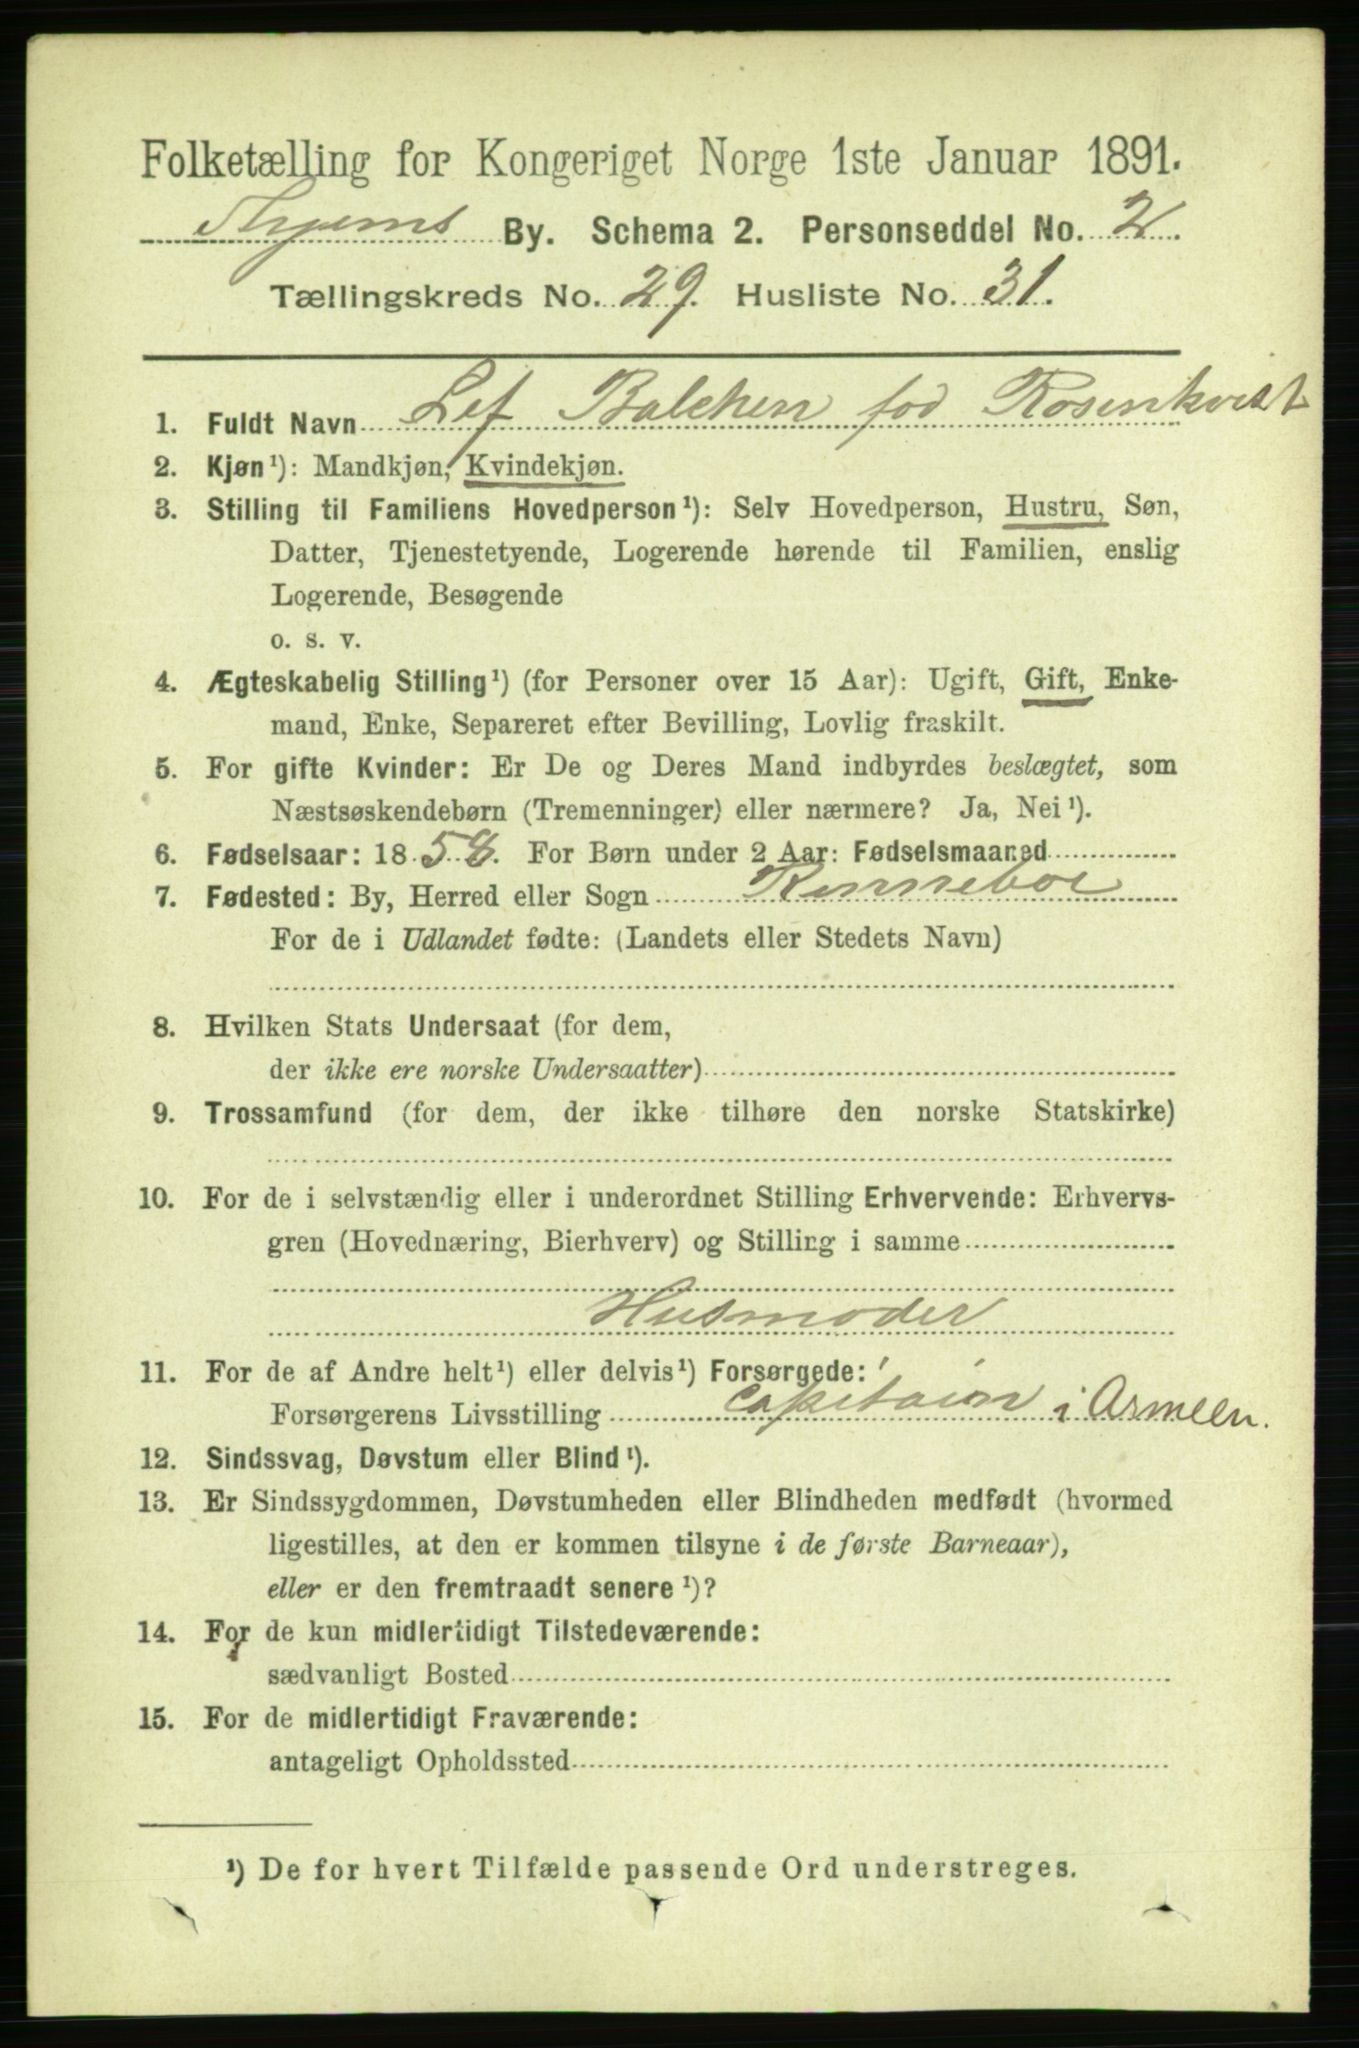 Folketælling for Kongeriget Norge 1ste Januar 1891.
Thjems By. Schema 2. Personseddel No. 2.
Tællingskreds No. 29. Husliste No. 31.
1. Fuldt Navn Lef Balchen fød Rosenkvist
2. Kjøn¹): Mandkjøn, Kvindekjøn.
3. Stilling til Familiens Hovedperson¹): Selv Hovedperson, Hustru, Søn,
Datter, Tjenestetyende, Logerende hørende til Familien, enslig
Logerende, Besøgende
o. s. v.
4. Ægteskabelig Stilling¹) (for Personer over 15 Aar): Ugift, Gift, Enke-
mand, Enke, Separeret efter Bevilling, Lovlig fraskilt.
5. For gifte Kvinder: Er De og Deres Mand indbyrdes beslægtet, som
Næstsøskendebørn (Tremenninger) eller nærmere? Ja, Nei¹).
6. Fødselsaar: 1858. For Børn under 2 Aar: Fødselsmaaned
7. Fødested: By, Herred eller Sogn Renneboe
For de i Udlandet fødte: (Landets eller Stedets Navn)
8. Hvilken Stats Undersaat (for dem,
der ikke ere norske Undersaatter)
9. Trossamfund (for dem, der ikke tilhøre den norske Statskirke)
10. For de i selvstændig eller i underordnet Stilling Erhvervende: Erhvervs-
gren (Hovednæring, Bierhverv) og Stilling i samme
Husmoder
11. For de af Andre helt¹) eller delvis¹) Forsørgede:
Forsørgerens Livsstilling Capitain i Armeen.
12. Sindssvag, Døvstum eller Blind¹).
13. Er Sindssygdommen, Døvstumheden eller Blindheden medfødt (hvormed
ligestilles, at den er kommen tilsyne i de første Barneaar),
eller er den fremtraadt senere¹)?
14. For de kun midlertidigt Tilstedeværende:
sædvanligt Bosted
15. For de midlertidigt Fraværende:
antageligt Opholdssted
¹) De for hvert Tilfælde passende Ord understreges.